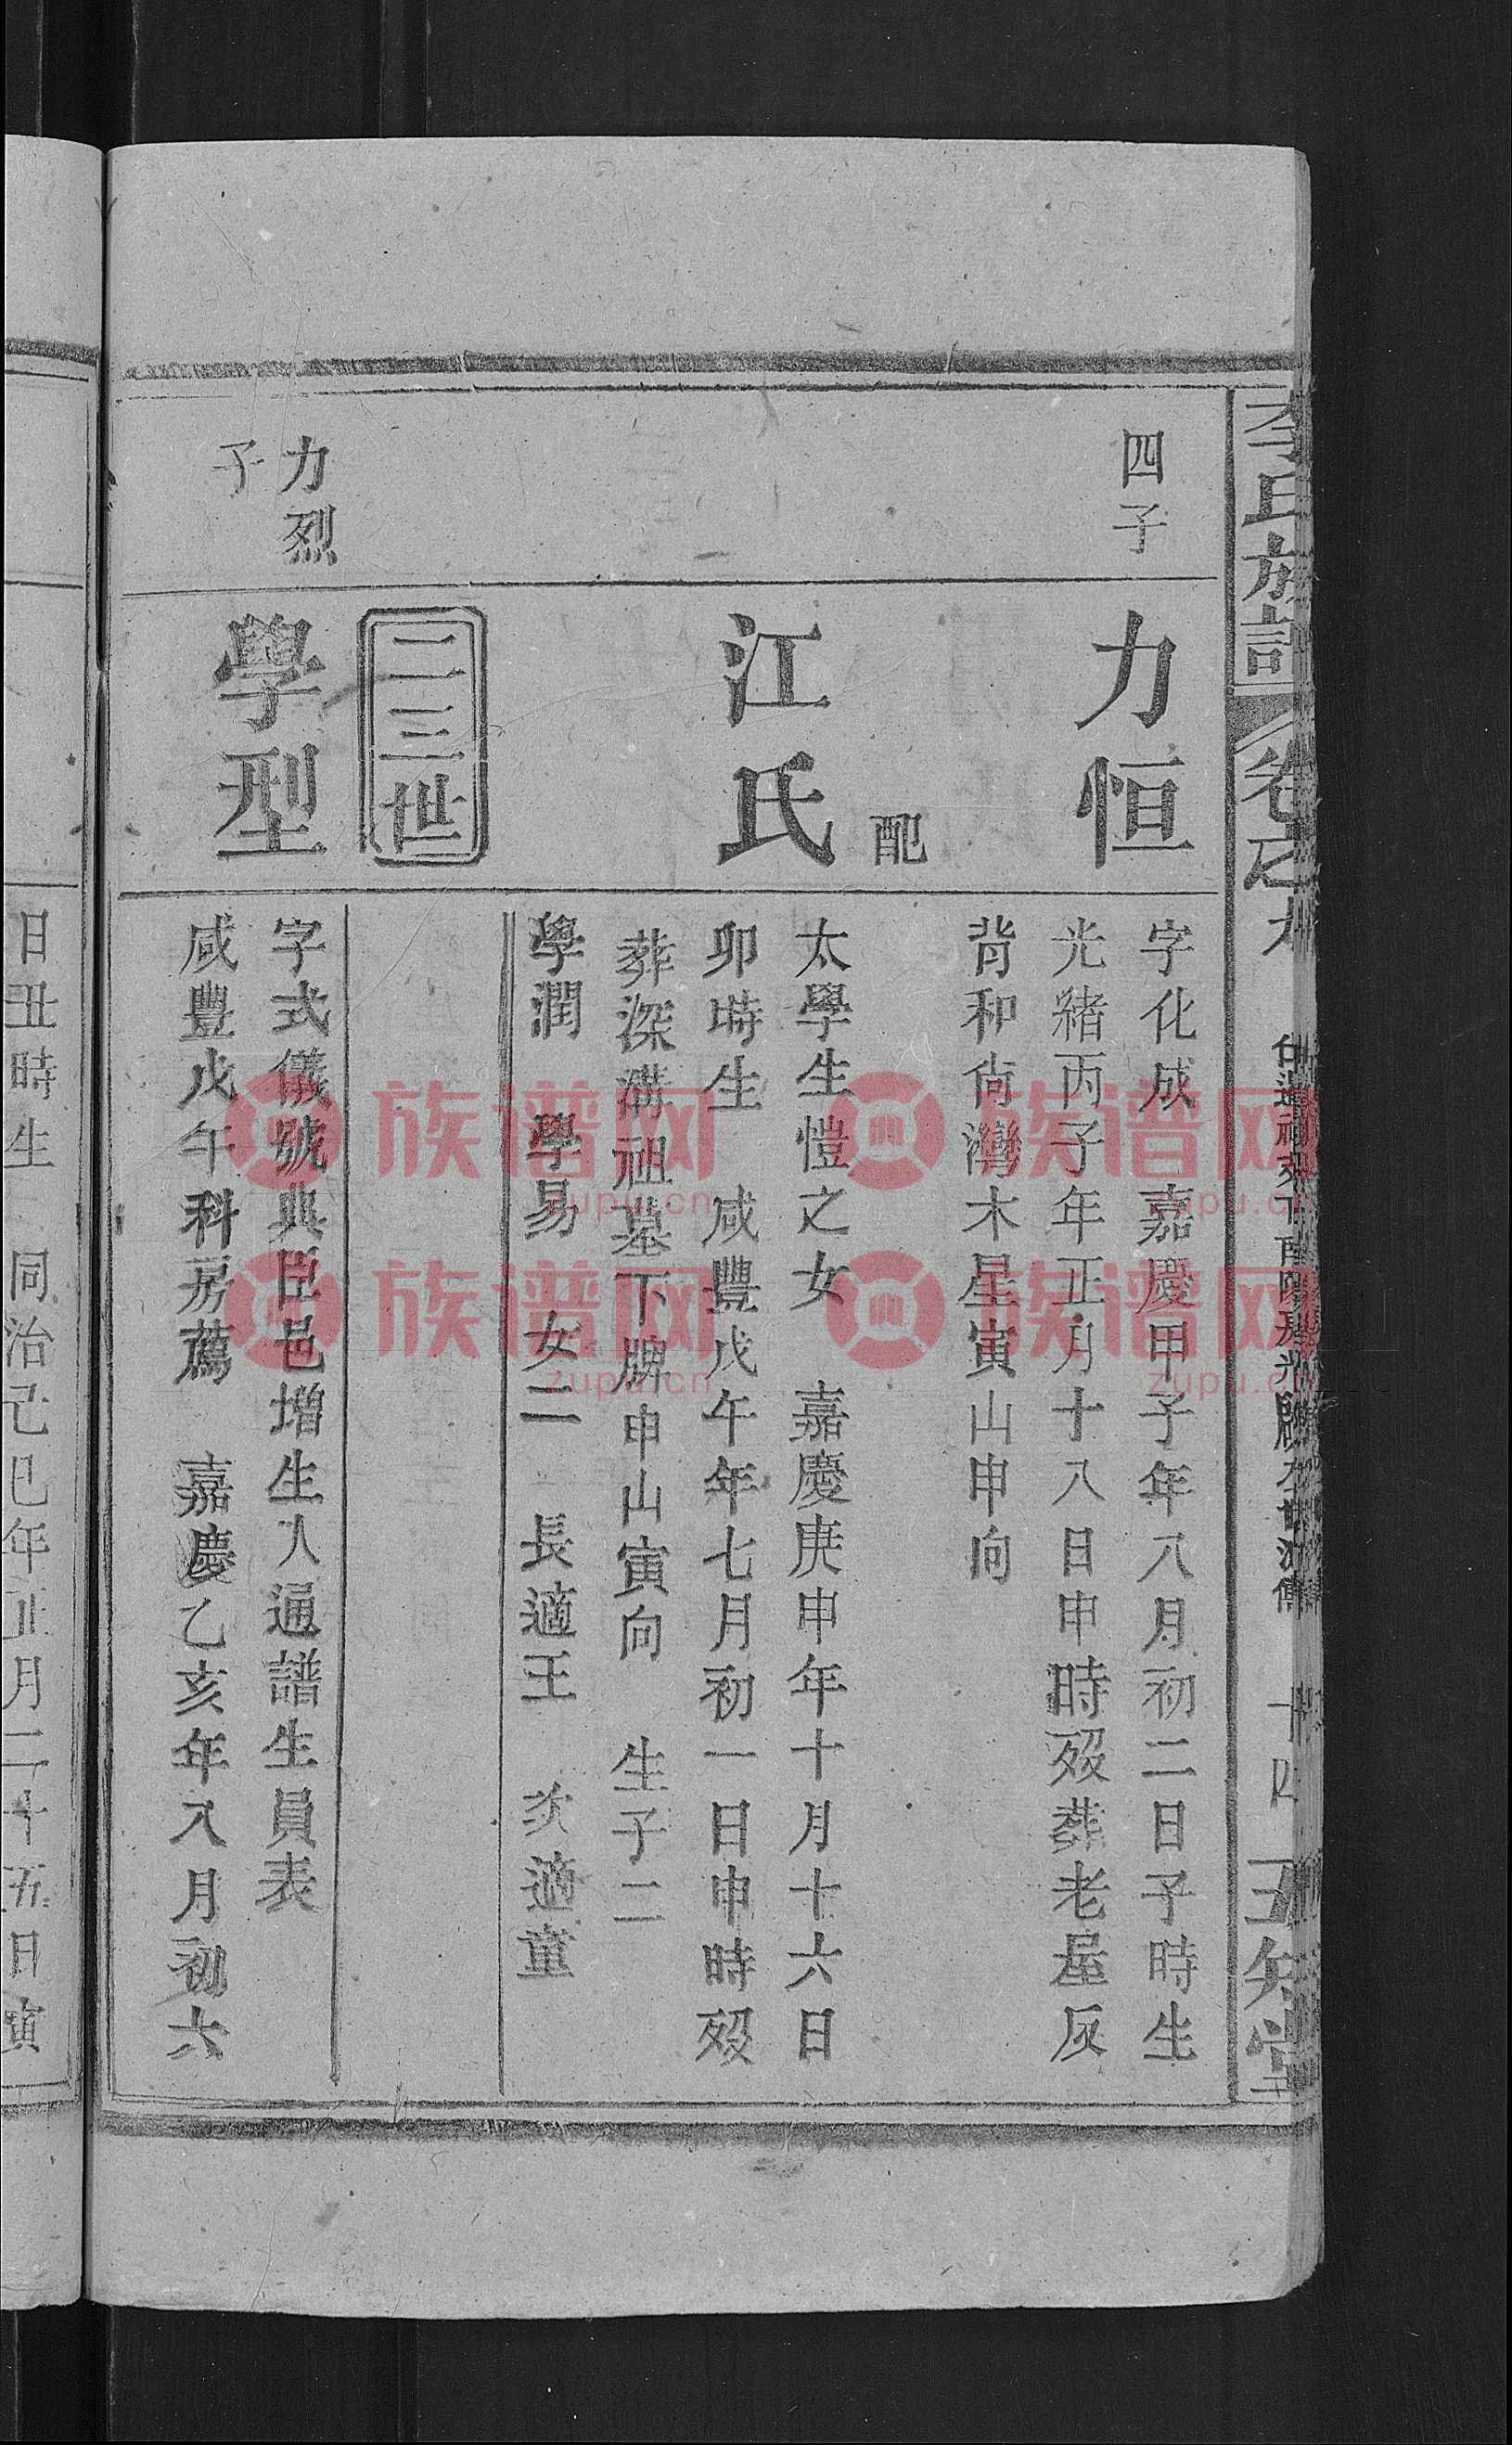 李氏族譜
卷之九
十四
五知堂
四子
力恒
字化成　嘉慶甲子年八月初二日子時生
光緒丙子年正月十八日申時歿葬老屋灰
背和尚灣木星寅山申向
配
江氏
太學生愷之女　嘉慶庚申年十月十六日
卯時生　咸豐戊午年七月初一日申時歿
葬深溝祖墓下脾申山寅向　生子二
學潤　學易　女二　長適王　次適童
二三世
力烈
子
學型
字式儀號典臣邑增生入通譜生員表
咸豐戊午科房薦　嘉慶乙亥年八月初六
日丑時生　同治己巳年正月二十五日寅
族谱网
zupu.cn
族谱网
zupu.cn
族谱网
zupu.cn
族谱网
zupu.cn